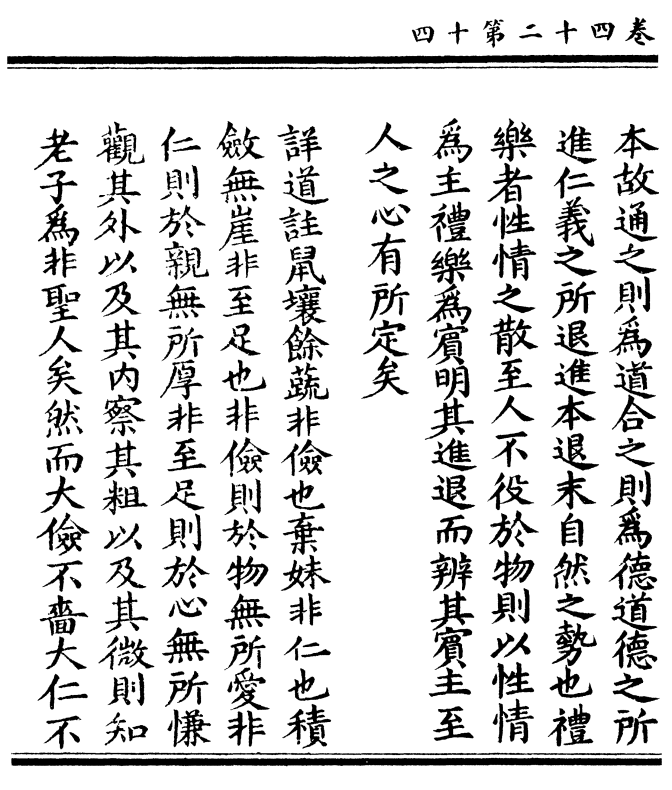 卷四十二第十四
本故通之則爲道合之則爲德道德之所
進仁義之所退進本退末自然之勢也禮
樂者性情之散至人不役於物則以性情
爲主禮樂爲賓明其進退而辨其賓主至
人之心有所定矣
詳道註鼠壤餘蔬非儉也棄妹非仁也積
斂無崖非至足也非儉則於物無所愛非
仁則於親無所厚非至足則於心無所慊
觀其外以及其内察其粗以及其微則知
老子爲非聖人矣然而大儉不嗇大仁不